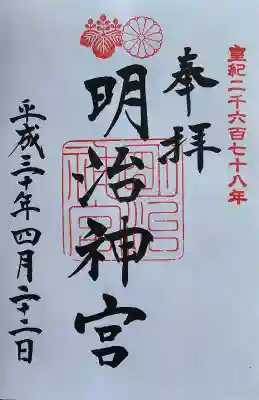 皇紀二千六百七十八年
奉拝
明治神宮
平成三十年四月二十二日